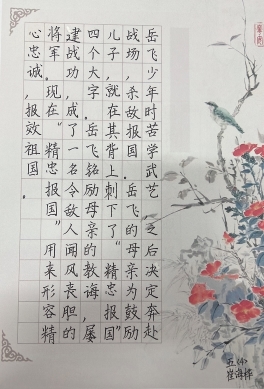 岳飞少年时苦学武艺,之后决定奔赴
战场,杀敌报国.岳飞的母亲为鼓励
儿子,就在其背上刺下了“精忠报国”
四个大字.岳飞铭励母亲的教诲,屡
建战功,成了一名令敌人闻风丧胆的
将军.现在“精忠报国”用来形容精
心忠诚,报效祖国.
五(4)